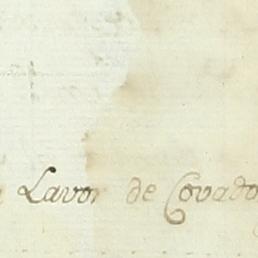 Lavor de Covado